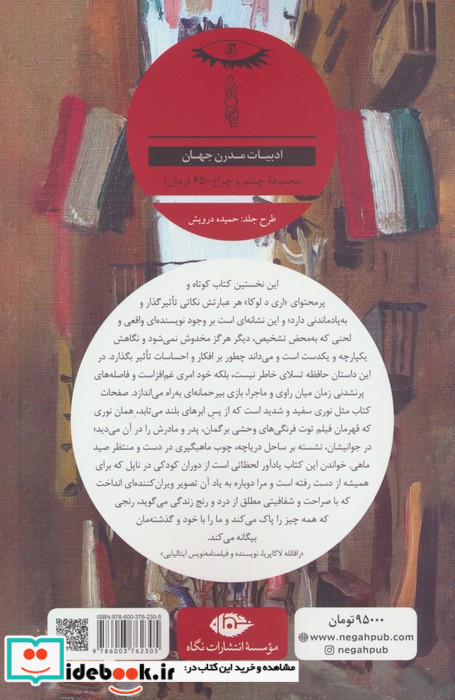 ادبیات مدرن جهان
مجموعهٔ چشم و چراغ-۶۵ (رمان)
طرح جلد: حمیده درویش
این نخستین کتاب کوتاه و
پرمحتوای «اری د لوکا» هر عبارتش نکاتی تأثیرگذار و
به‌یادماندنی دارد؛ و این نشانه‌ای است بر وجود نویسنده‌ای واقعی و
لحنی که به‌محض تشخیص، دیگر هرگز مخدوش نمی‌شود و نگاهش
یکپارچه و یکدست است و می‌داند چطور بر افکار و احساسات تأثیر بگذارد. در
این داستان حافظه تسلای خاطر نیست، بلکه خود امری غم‌افزاست و فاصله‌های
پرنشدنی زمان میان راوی و ماجرا، بازی بیرحمانه‌ای به‌راه می‌اندازد. صفحات
کتاب مثل نوری سفید و شدید است که از پسِ ابرهای بلند می‌تابد، همان نوری
که قهرمان فیلم توت فرنگی‌های وحشی برگمان، پدر و مادرش را در آن می‌دید؛
در جوانیشان، نشسته بر ساحل دریاچه، چوب ماهیگیری در دست و منتظر صید
ماهی. خواندن این کتاب یادآور لحظاتی است از دوران کودکی در ناپل که برای
همیشه از دست رفته است و مرا دوباره به یاد آن تصویر ویران‌کننده‌ای انداخت
که با صراحت و شفافیتی مطلق از درد و رنج زندگی می‌گوید، رنجی
که همه چیز را پاک می‌کند و ما را با خود و گذشته‌مان
بیگانه می‌کند.
«رافائله لاکاپریا، نویسنده و فیلمنامه‌نویس ایتالیایی»
ISBN: 978-600-376-230-5
9786003762305
مؤسسهٔ انتشارات نگاه
۹۵۰۰۰ تومان
negahpub.com
negahpub.com
مشاهده و خرید این کتاب در:
iidebook.ir